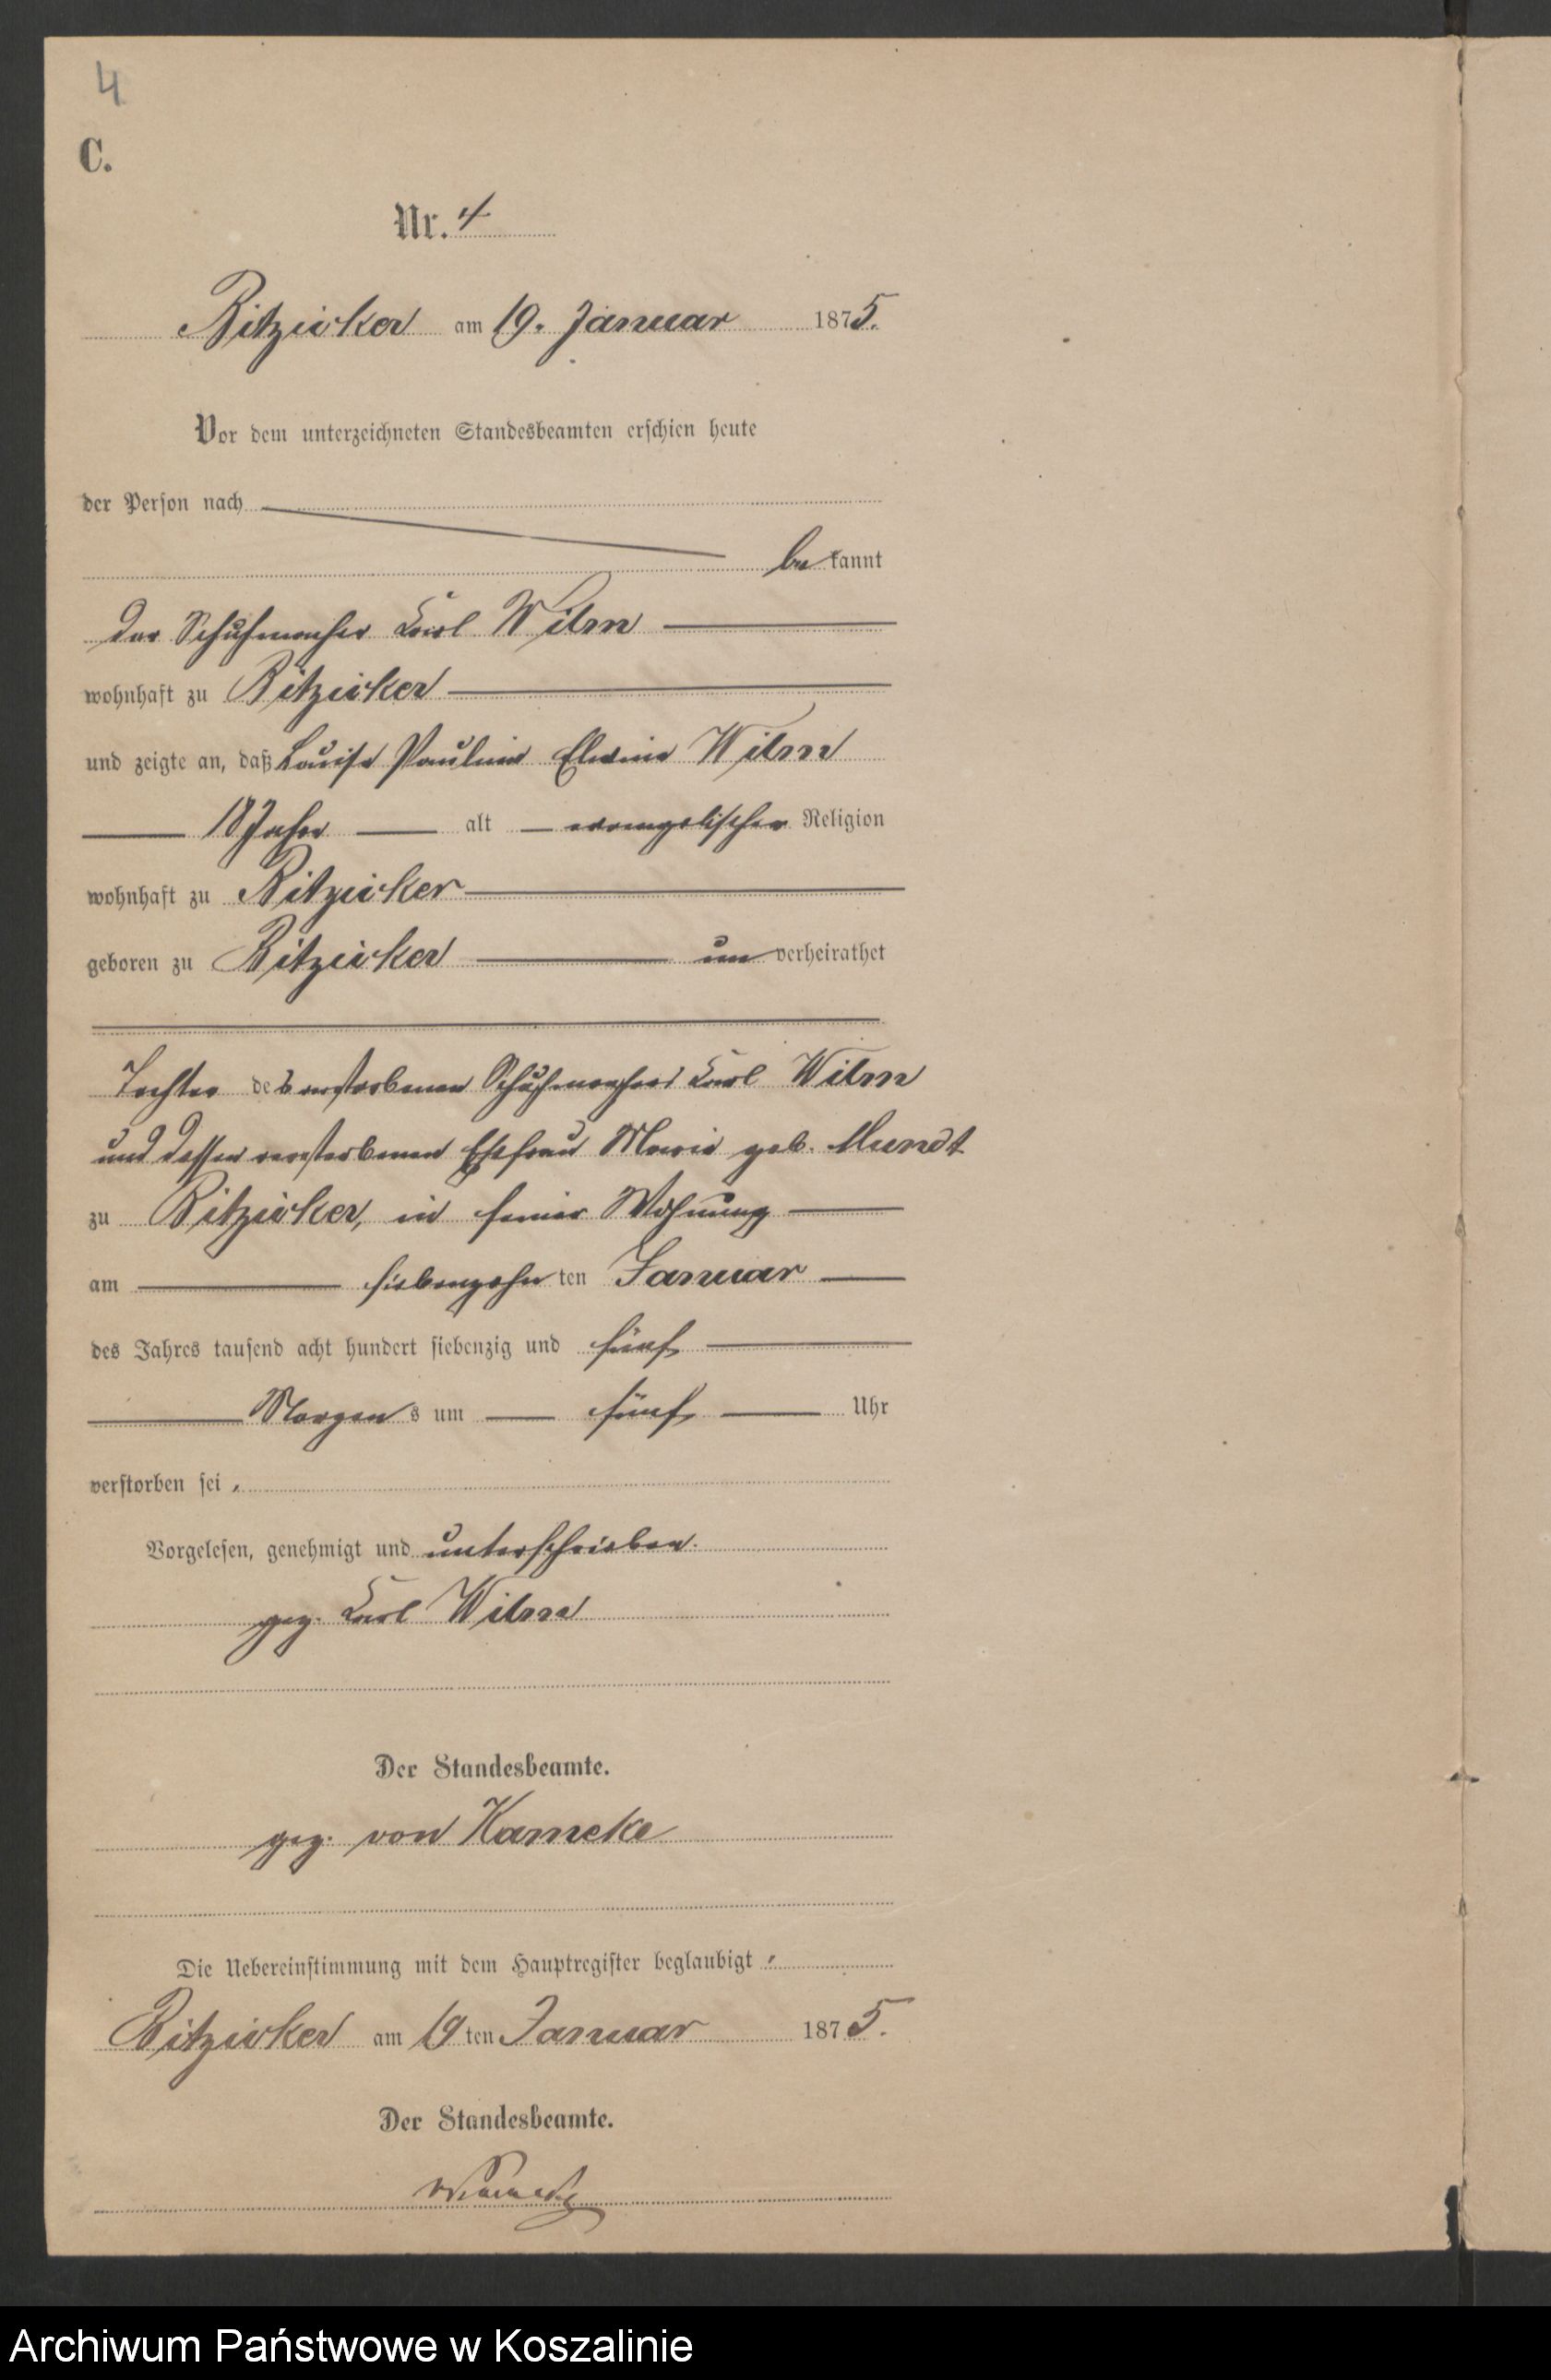 4
C.
Nr. 4
Ritzicker am 19. Januar 1875.
Vor dem unterzeichneten Standesbeamten erschien heute
der Person nach
bekannt
der Schuhmacher Karl Wilm
wohnhaft zu Ritzicker
und zeigte an, daß Louise Pauline Elwine Wilm
18 Jahr alt evangelischer Religion
wohnhaft zu Ritzicker
geboren zu Ritzicker unverheirathet
Tochter des verstorbenen Schuhmachers Karl Wilm
und dessen verstorbenen Ehefrau Marie geb. Mundt
zu Ritzicker, in seiner Wohnung
am siebenzehnten Januar
des Jahres tausend acht hundert siebenzig und fünf
Morgens um fünf Uhr
verstorben sei.
Vorgelesen, genehmigt und unterschrieben.
gez. Karl Wilm
Der Standesbeamte.
gez. von Kameke
Die Uebereinstimmung mit dem Hauptregister beglaubigt
Ritzicker am 19ten Januar 1875.
Der Standesbeamte.
vKameke
Archiwum Państwowe w Koszalinie